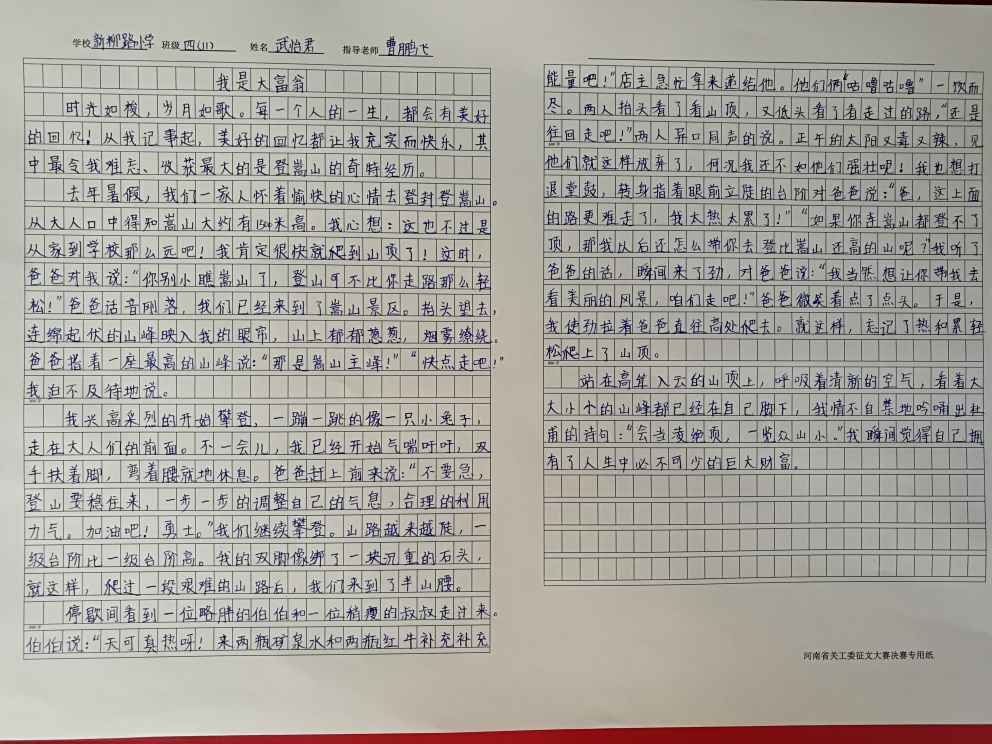 学校 新柳路小学 班级 四(11) 姓名 武怡君 指导老师 曹鹏飞
我是大富翁
时光如梭，岁月如歌。每一个人的一生，都会有美好
的回忆！从我记事起，美好的回忆都让我充实而快乐，其
中最令我难忘、收获最大的是登嵩山的奇特经历。
去年暑假，我们一家人怀着愉快的心情去登封登嵩山。
从大人口中得知嵩山大约有1500米高。我心想：这也不过是
从家到学校那么远吧！我肯定很快就爬到山顶了！这时，
爸爸对我说：“你别小瞧嵩山了，登山可不比你走路那么轻
松！”爸爸话音刚落，我们已经来到了嵩山景区。抬头望去，
连绵起伏的山峰映入我的眼帘，山上郁郁葱葱，烟雾缭绕。
爸爸指着一座最高的山峰说：“那是嵩山主峰！”“快点走吧！”
我迫不及待地说。
我兴高采烈的开始攀登，一蹦一跳的像一只小兔子，
走在大人们的前面。不一会儿，我已经开始气喘吁吁，双
手扶着脚，弯着腰就地休息。爸爸赶上前来说：“不要急，
登山要稳住来，一步一步的调整自己的气息，合理的利用
力气。加油吧！勇士。”我们继续攀登。山路越来越陡，一
级台阶比一级台阶高。我的双脚像绑了一块沉重的石头，
就这样，爬过一段艰难的山路后，我们来到了半山腰。
停歇间看到一位略胖的伯伯和一位稍瘦的叔叔走过来。
伯伯说：“天可真热呀！来两瓶矿泉水和两瓶红牛补充补充
能量吧！”店主急忙拿来递给他。他们俩“咕噜咕噜”一饮而
尽。两人抬头看了看山顶，又低头看了看走过的路，“还是
往回走吧！”两人异口同声的说。正午的太阳又毒又辣，见
他们就这样放弃了，何况我还不如他们强壮呢！我也想打
退堂鼓，转身指着眼前立陡的台阶对爸爸说：“爸，这上面
的路更难走了，我太热太累了！”“如果你连嵩山都登不了
顶，那我以后还怎么带你去登比嵩山还高的山呢？”我听了
爸爸的话，瞬间来了劲，对爸爸说：“我当然想让你带我去
看美丽的风景，咱们走吧！”爸爸微笑着点了点头。于是，
我使劲拉着爸爸直往高处爬去。就这样，忘记了热和累轻
松爬上了山顶。
站在高耸入云的山顶上，呼吸着清新的空气，看着大
大小小的山峰都已经在自己脚下，我情不自禁地吟诵出杜
甫的诗句：“会当凌绝顶，一览众山小。”我瞬间觉得自己拥
有了人生中必不可少的巨大财富。
河南省关工委征文大赛决赛专用纸